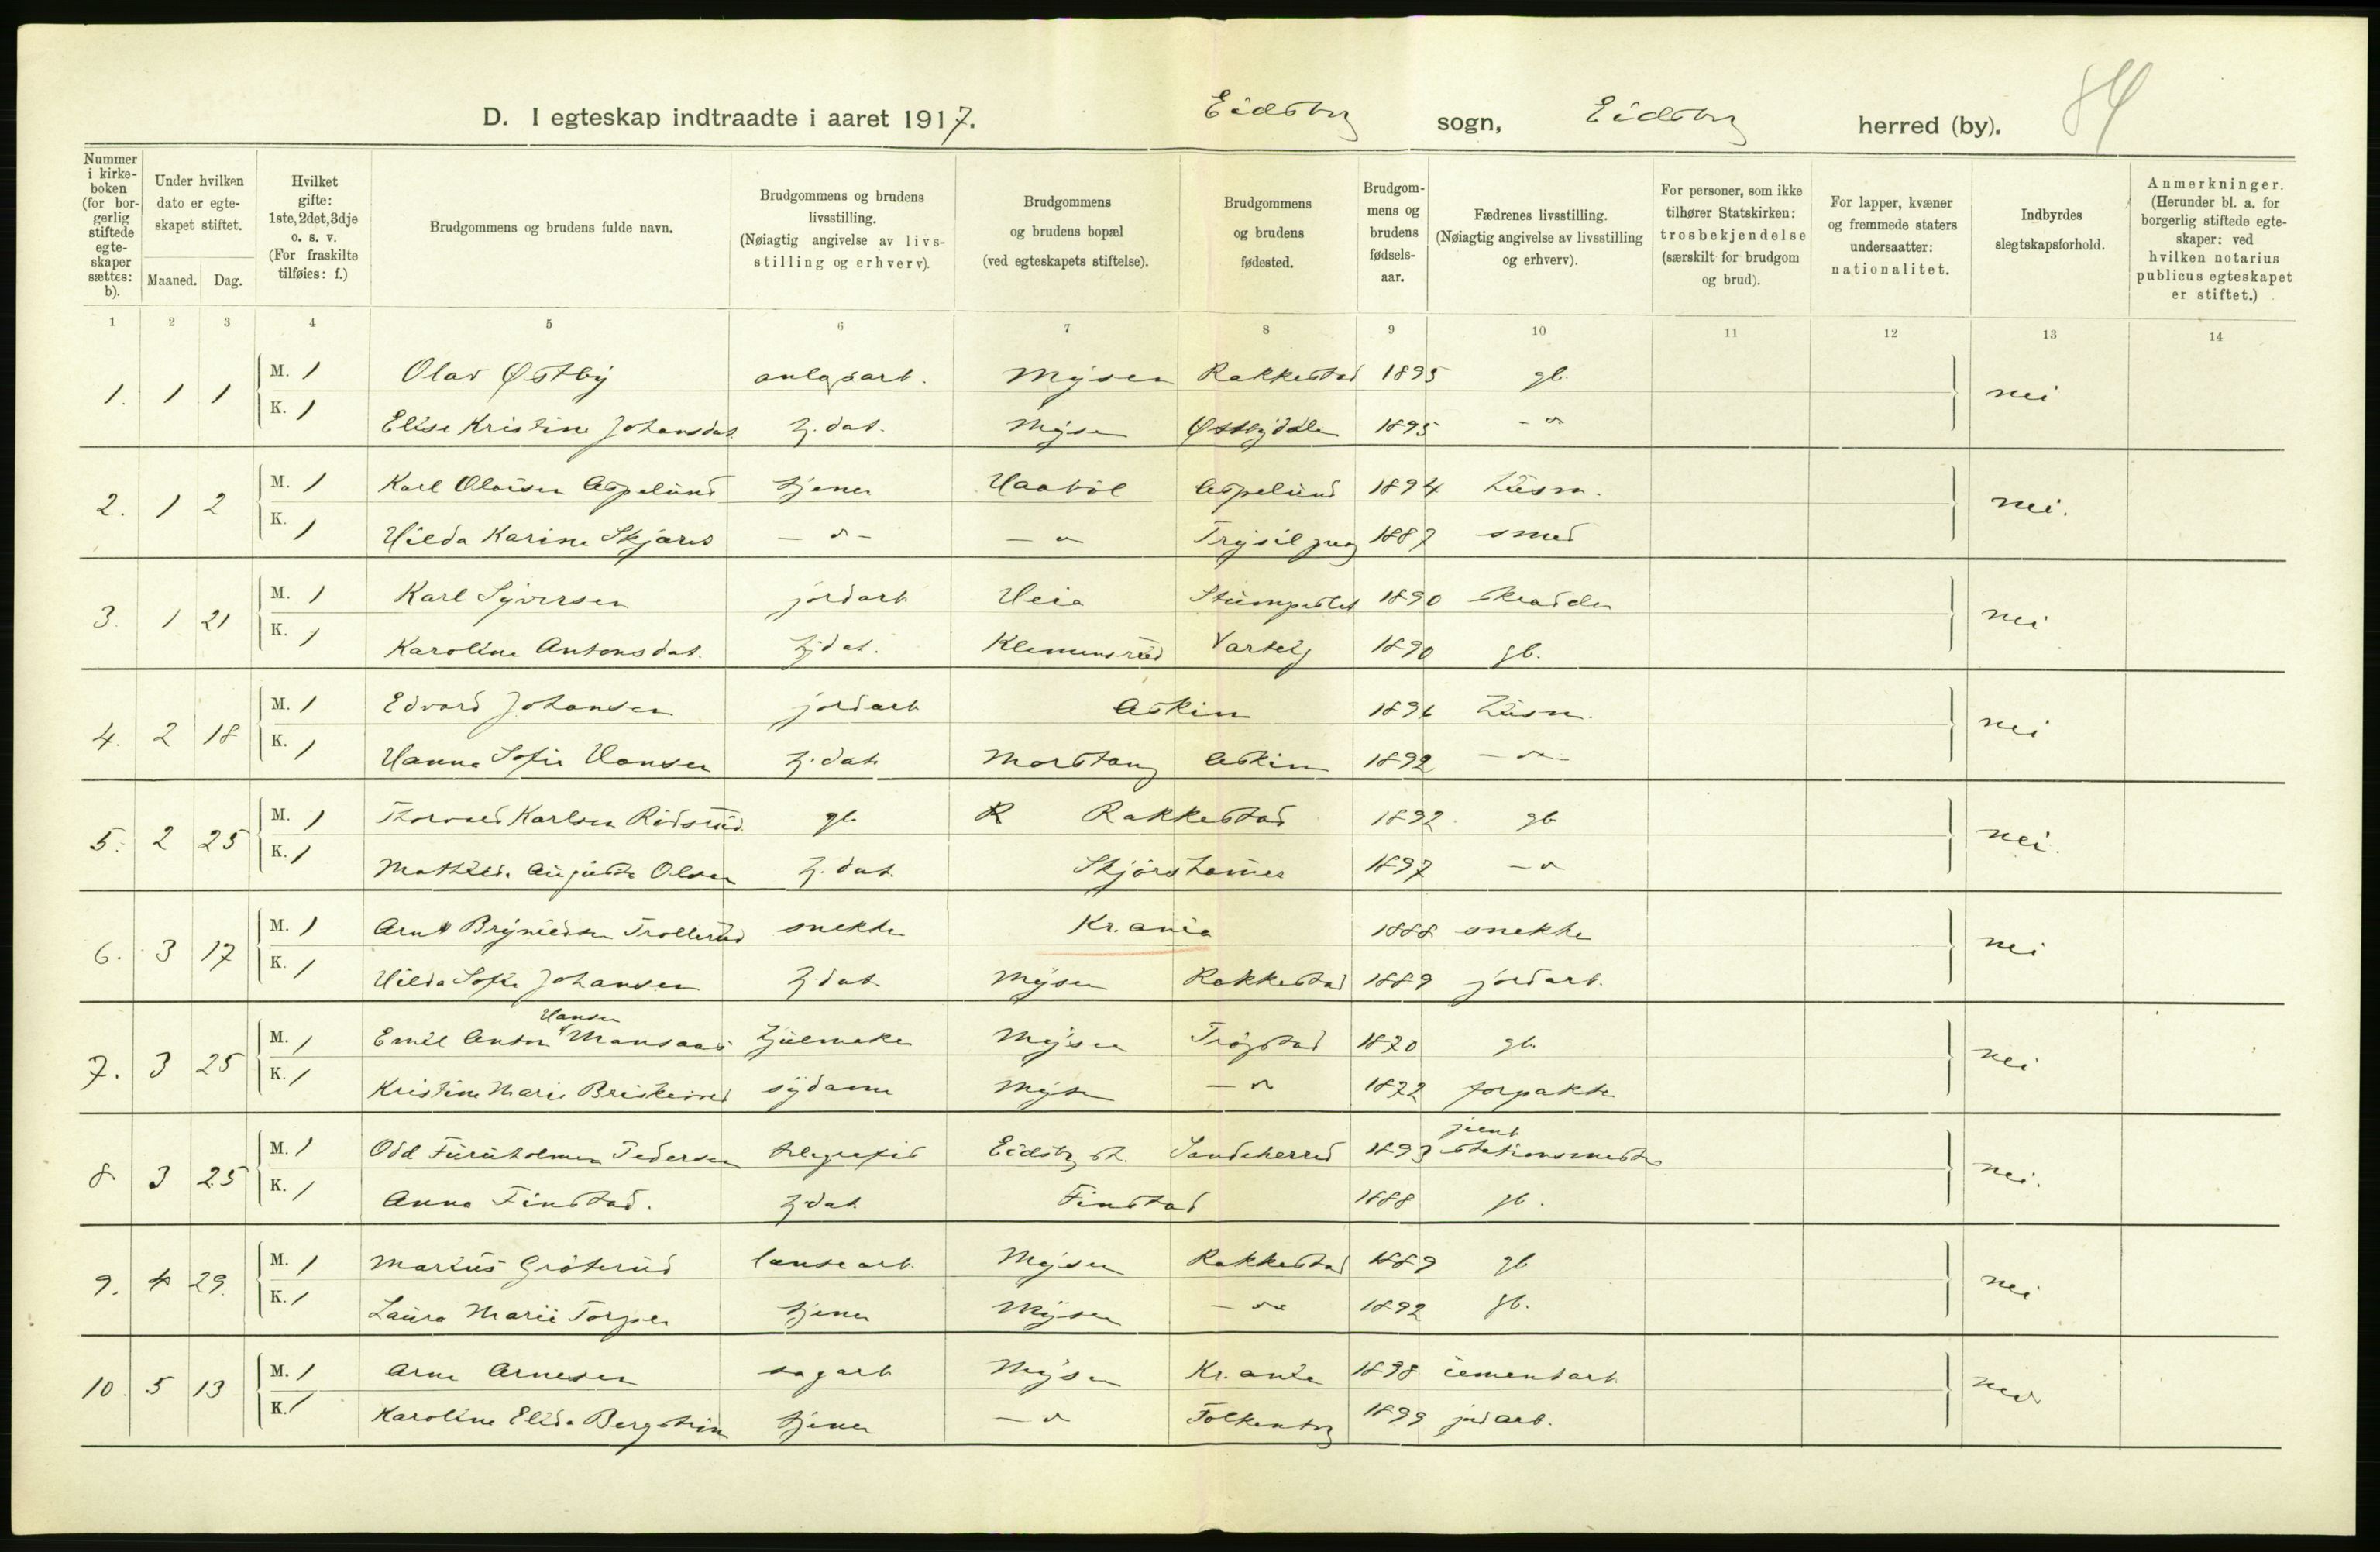 84
D. I egteskap indtraadte i aaret 1917. Eidsbg sogn, Eidsbg herred (by).
Nummer i kirkeboken (for borgerlig stiftede egteskaper sættes: b).
Under hvilken dato er egteskapet stiftet.
Maaned. Dag.
Hvilket gifte: 1ste, 2det, 3dje o. s. v. (For fraskilte tilføies: f.)
Brudgommens og brudens fulde navn.
Brudgommens og brudens livsstilling. (Nøiagtig angivelse av livsstilling og erhverv).
Brudgommens og brudens bopæl (ved egteskapets stiftelse).
Brudgommens og brudens fødested.
Brudgommens og brudens fødselsaar.
Fædrenes livsstilling. (Nøiagtig angivelse av livsstilling og erhverv).
For personer, som ikke tilhører Statskirken: trosbekjendelse (særskilt for brudgom og brud).
For lapper, kvæner og fremmede staters undersaatter: nationalitet.
Indbyrdes slegtskapsforhold.
Anmerkninger. (Herunder bl. a. for borgerlig stiftede egteskaper: ved hvilken notarius publicus egteskapet er stiftet.)
1 2 3 4 5 6 7 8 9 10 11 12 13 14
1. 1 1 M. 1 Olav Østby anlgsarb. Mysen Rakkestad 1895 gb. nei
K. 1 Elise Kristine Johansdat tj. dat. Mysen 1895 - " -
2. 1 2 M. 1 Karl Olaisen Aspelund tjener Haabøl Aspelund 1894 husm. nei.
K. 1 Hilda Karine Skjæret - " - - " Trysil 1887 smed
3. 1 21 M. 1 Karl Syversen jordarb Heia 1890 skrædder nei
K. 1 Karoline Antonsdat. tj dat. Klemensrud Varteig 1890 gb.
4. 2 18 M. 1 Edvard Johansen jordarb Askim 1896 husm. nei
K. 1 Hanna Sofie Hansen tj. dat. Morstong Askim 1892 - " -
5. 2 25 M. 1 Thorvald Karlsen Rødsrud gb R Rakkestad 1892 gb nei.
K. 1 Mathilde Augusta Olsen tj. dat. Skjørshamer 1897 - "
6. 3 17 M. 1 Arnt Brynildsen Trollerud snekke Kr.ania 1888 snekke nei
K. 1 Hilda Sofie Johansen tj dat. Mysen Rakkestad 1889 jordarb.
7. 3 25 M. 1 Emil Anton Hansen Mansaas hjulmaker Mysen Trøgstad 1870 gb. nei
K. 1 Kristine Marie Briskerød sydame Mysen - " 1872 forpakter
8 3 25 M. 1 Odd Furuholmen Pedersen telegrafist Eidsbg st. Sandeherred 1893 jernb stationsmester nei.
K. 1 Anna Finstad. tj dat Finstad 1888 gb.
9. 4 29. M. 1 Marius Grøterud Mysen Rakkestad 1889 gb nei
K. 1 Laura Marie Torper tjener Mysen - " 1892 gb.
10. 5 13 M. 1 Arne Arnesen sagarb Mysen Kr.ania 1898 cementarb. nei
K. 1 Karoline Elida Bergstrøm tjener - " Folkenbg 1899 jordarb.